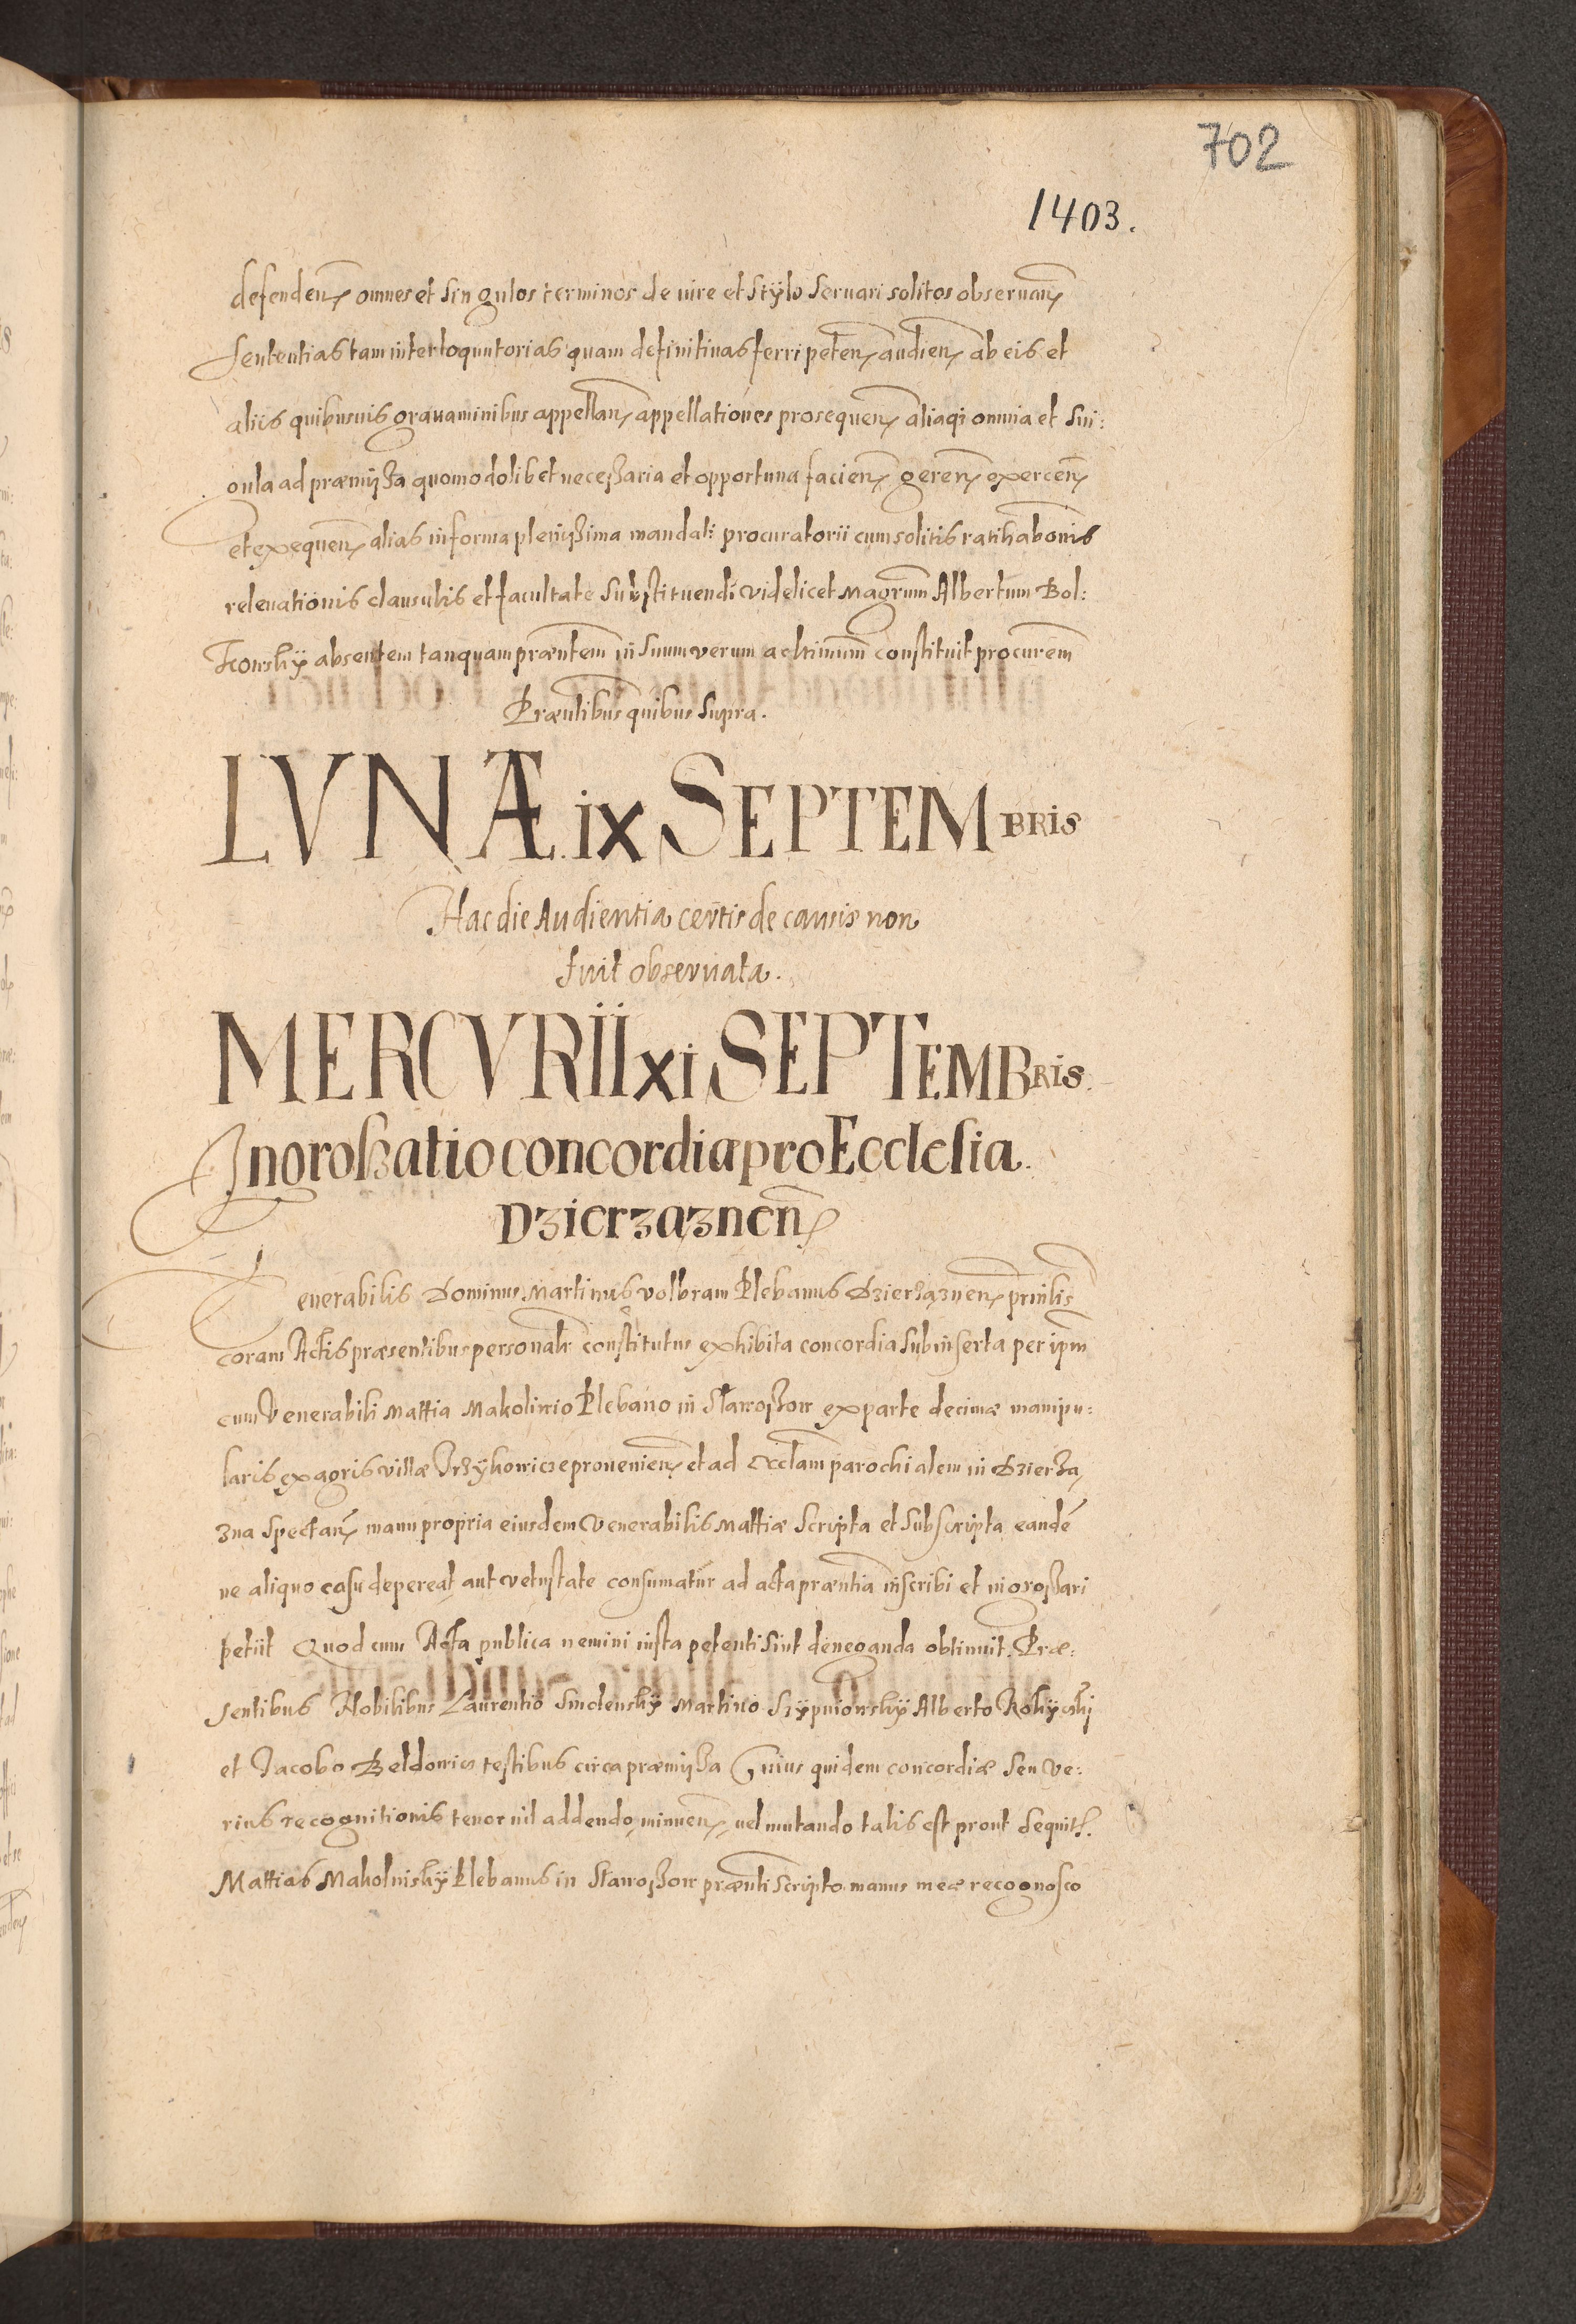 702
1403.
defenden̄ omnes et singulos terminos de iure et stÿlo seruari solitos obseruan̄
sententias tam interloquutorias quam definitiuas ferri peten̄ audien̄ ab eis et
aliis quibusuis grauaminibus appellan̄ appellationes prosequen̄ aliaq; omnia et sin:
gula ad præmissa quomodolibet necessaria et opportuna facien̄ geren̄ exercen̄
et exequen̄ alias in forma plenissima mandati procuratorii cum solitis ratihabōnis
releuationis clausulis et facultate substituendi videlicet Magrum̄ Albertum Bol:
absentem tanquam præntem̄ in suum verum ac ltimum̄ constituit procurem̄
Præntibus̄ quibus supra.
LVNÆ ix SEPTEMBRIS
Hac die Audientia certis de causis non
fuit obseruata.
MERCVRII xi SEPTEMBRis.
Ingroszatio concordiæ pro Ecclesia
Dzierzaznen̄
Venerabilis Dominus Martinus Volbram Plebanus Dzierzaznen̄ prinlis̄
coram Actis præsentibus personalr̄ constitutus exhibita concordia subinserta per ipm̄
cum Venerabili Mattia Makolinio Plebano in Stawoszow ex parte decimæ manipu:
laris ex agris villæ Irzÿkowicze prouenien̄ et ad Ecclam̄ parochialem in Dzierza,
zna spectan̄ manu propria eiusdem Venerabilis Mattiæ scripta et subscripta eandē
ne aliquo casu depereat aut vetustate consumatur ad acta præntia̅ inscribi et ingroszari
petiit Quod cum Acta publica nemini iusta petenti sint deneganda obtinuit. Præ:
sentibus Nobilibus Laurentio Smolenskÿ Martino Szÿpniowskÿ Alberto Rokÿckj
et Jacobo Beldowicz testibus circa præmissa Cuius quidem concordiæ seu ve:
rius recognitionis tenor nil addendo, minuen̄, uel mutando talis est prout sequitr.
Mattias Makolniskÿ Plebanus in Stawoszow prænti̅ scripto manus meæ recognosco